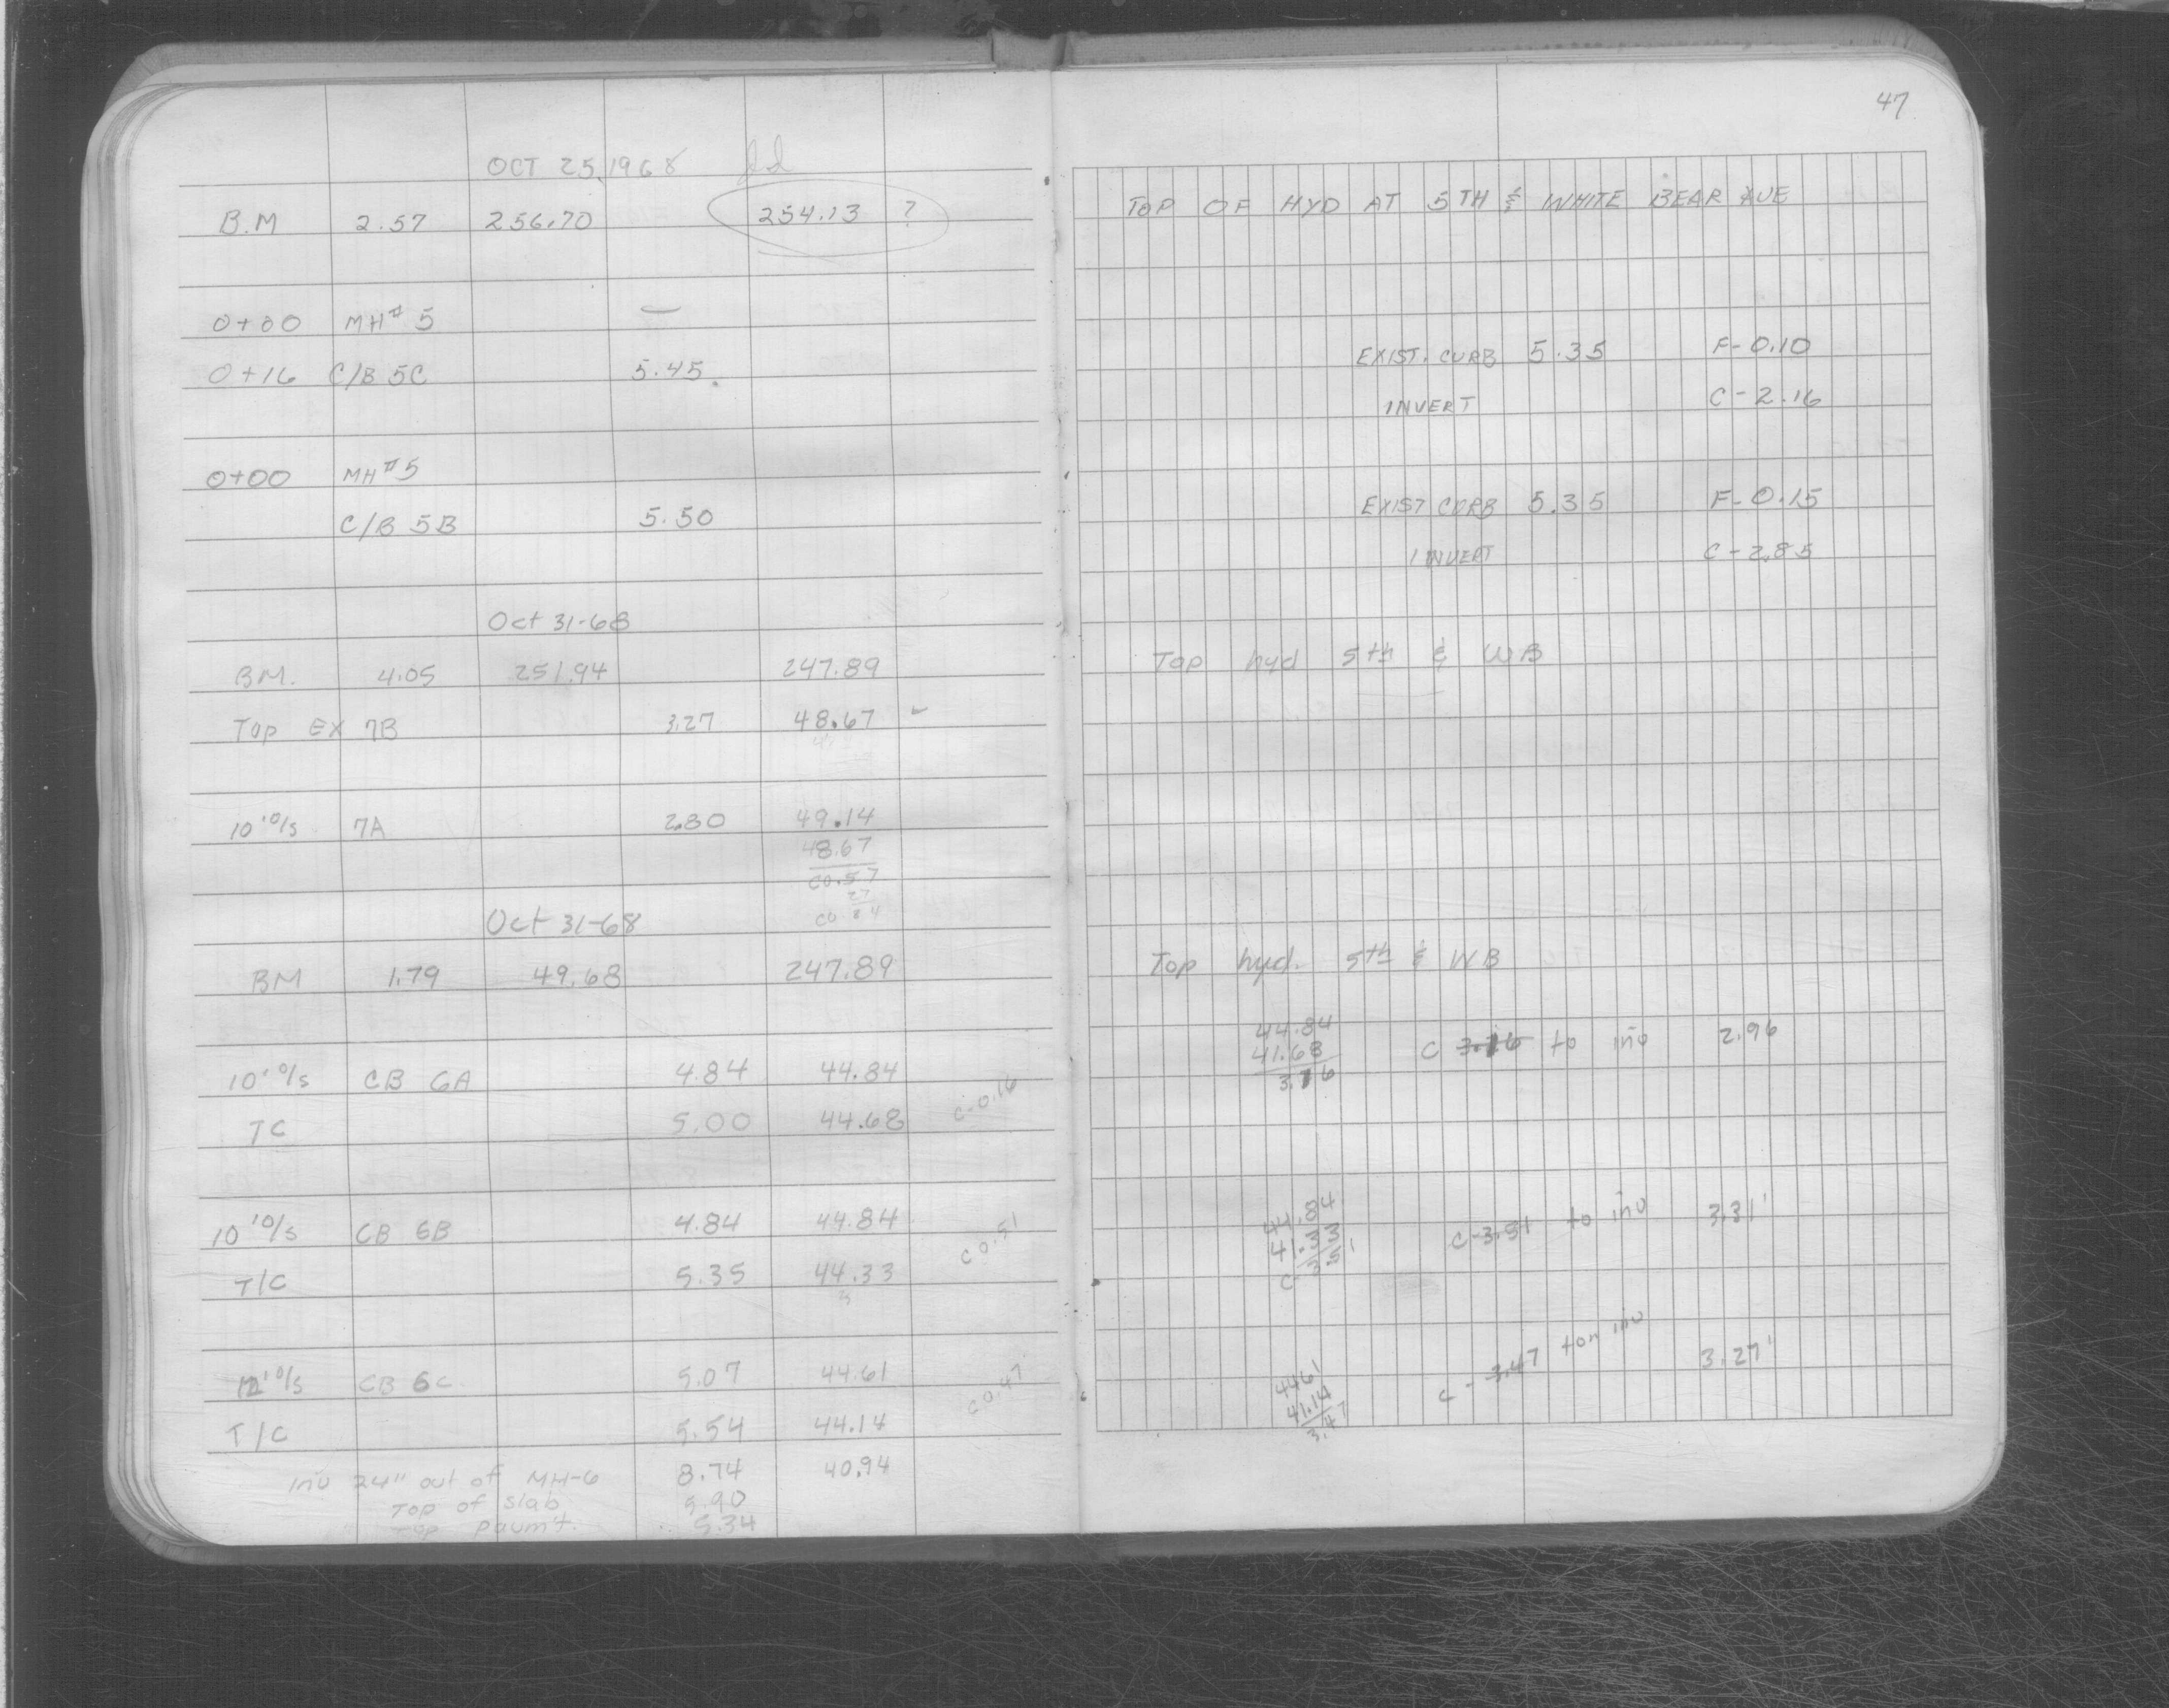 OCT 25, 1968
B.M 2.57 256.70 254.13 ?
0+00 MH# 5 —
0+16 C/B 5C 5.45
0+00 MH# 5
C/B 5B 5.50
Oct 31-68
BM. 4.05 251.94 247.89
Top EX 7B 3.27 48.67
10' o/s 7A 2.80 49.14
48.67
Oct 31-68
BM 1.79 49.68 247.89
10' o/s CB 6A 4.84 44.84
TC 5.00 44.68 C-0.16
10' o/s CB 6B 4.84 44.84
T/C 5.35 44.33 C 0.51
12' o/s CB 6C 5.07 44.61
T/C 5.54 44.14 C 0.47
Inv 24" out of MH-6 8.74 40.94
Top of slab 5.90
Top pavm't. 5.34
47
TOP OF HYD AT 5TH & WHITE BEAR AVE
EXIST. CURB 5.35 F-0.10
INVERT C-2.16
EXIST CURB 5.35 F-0.15
INVERT C-2.85
Top hyd 5th & WB
Top hyd. 5th & WB
44.84
41.68 C 3.16 to inv 2.96
3.16
44.84
41.33 C-3.51 to inv 3.31'
C-3.51
44.61
41.14 C-3.47 to inv 3.27'
3.47